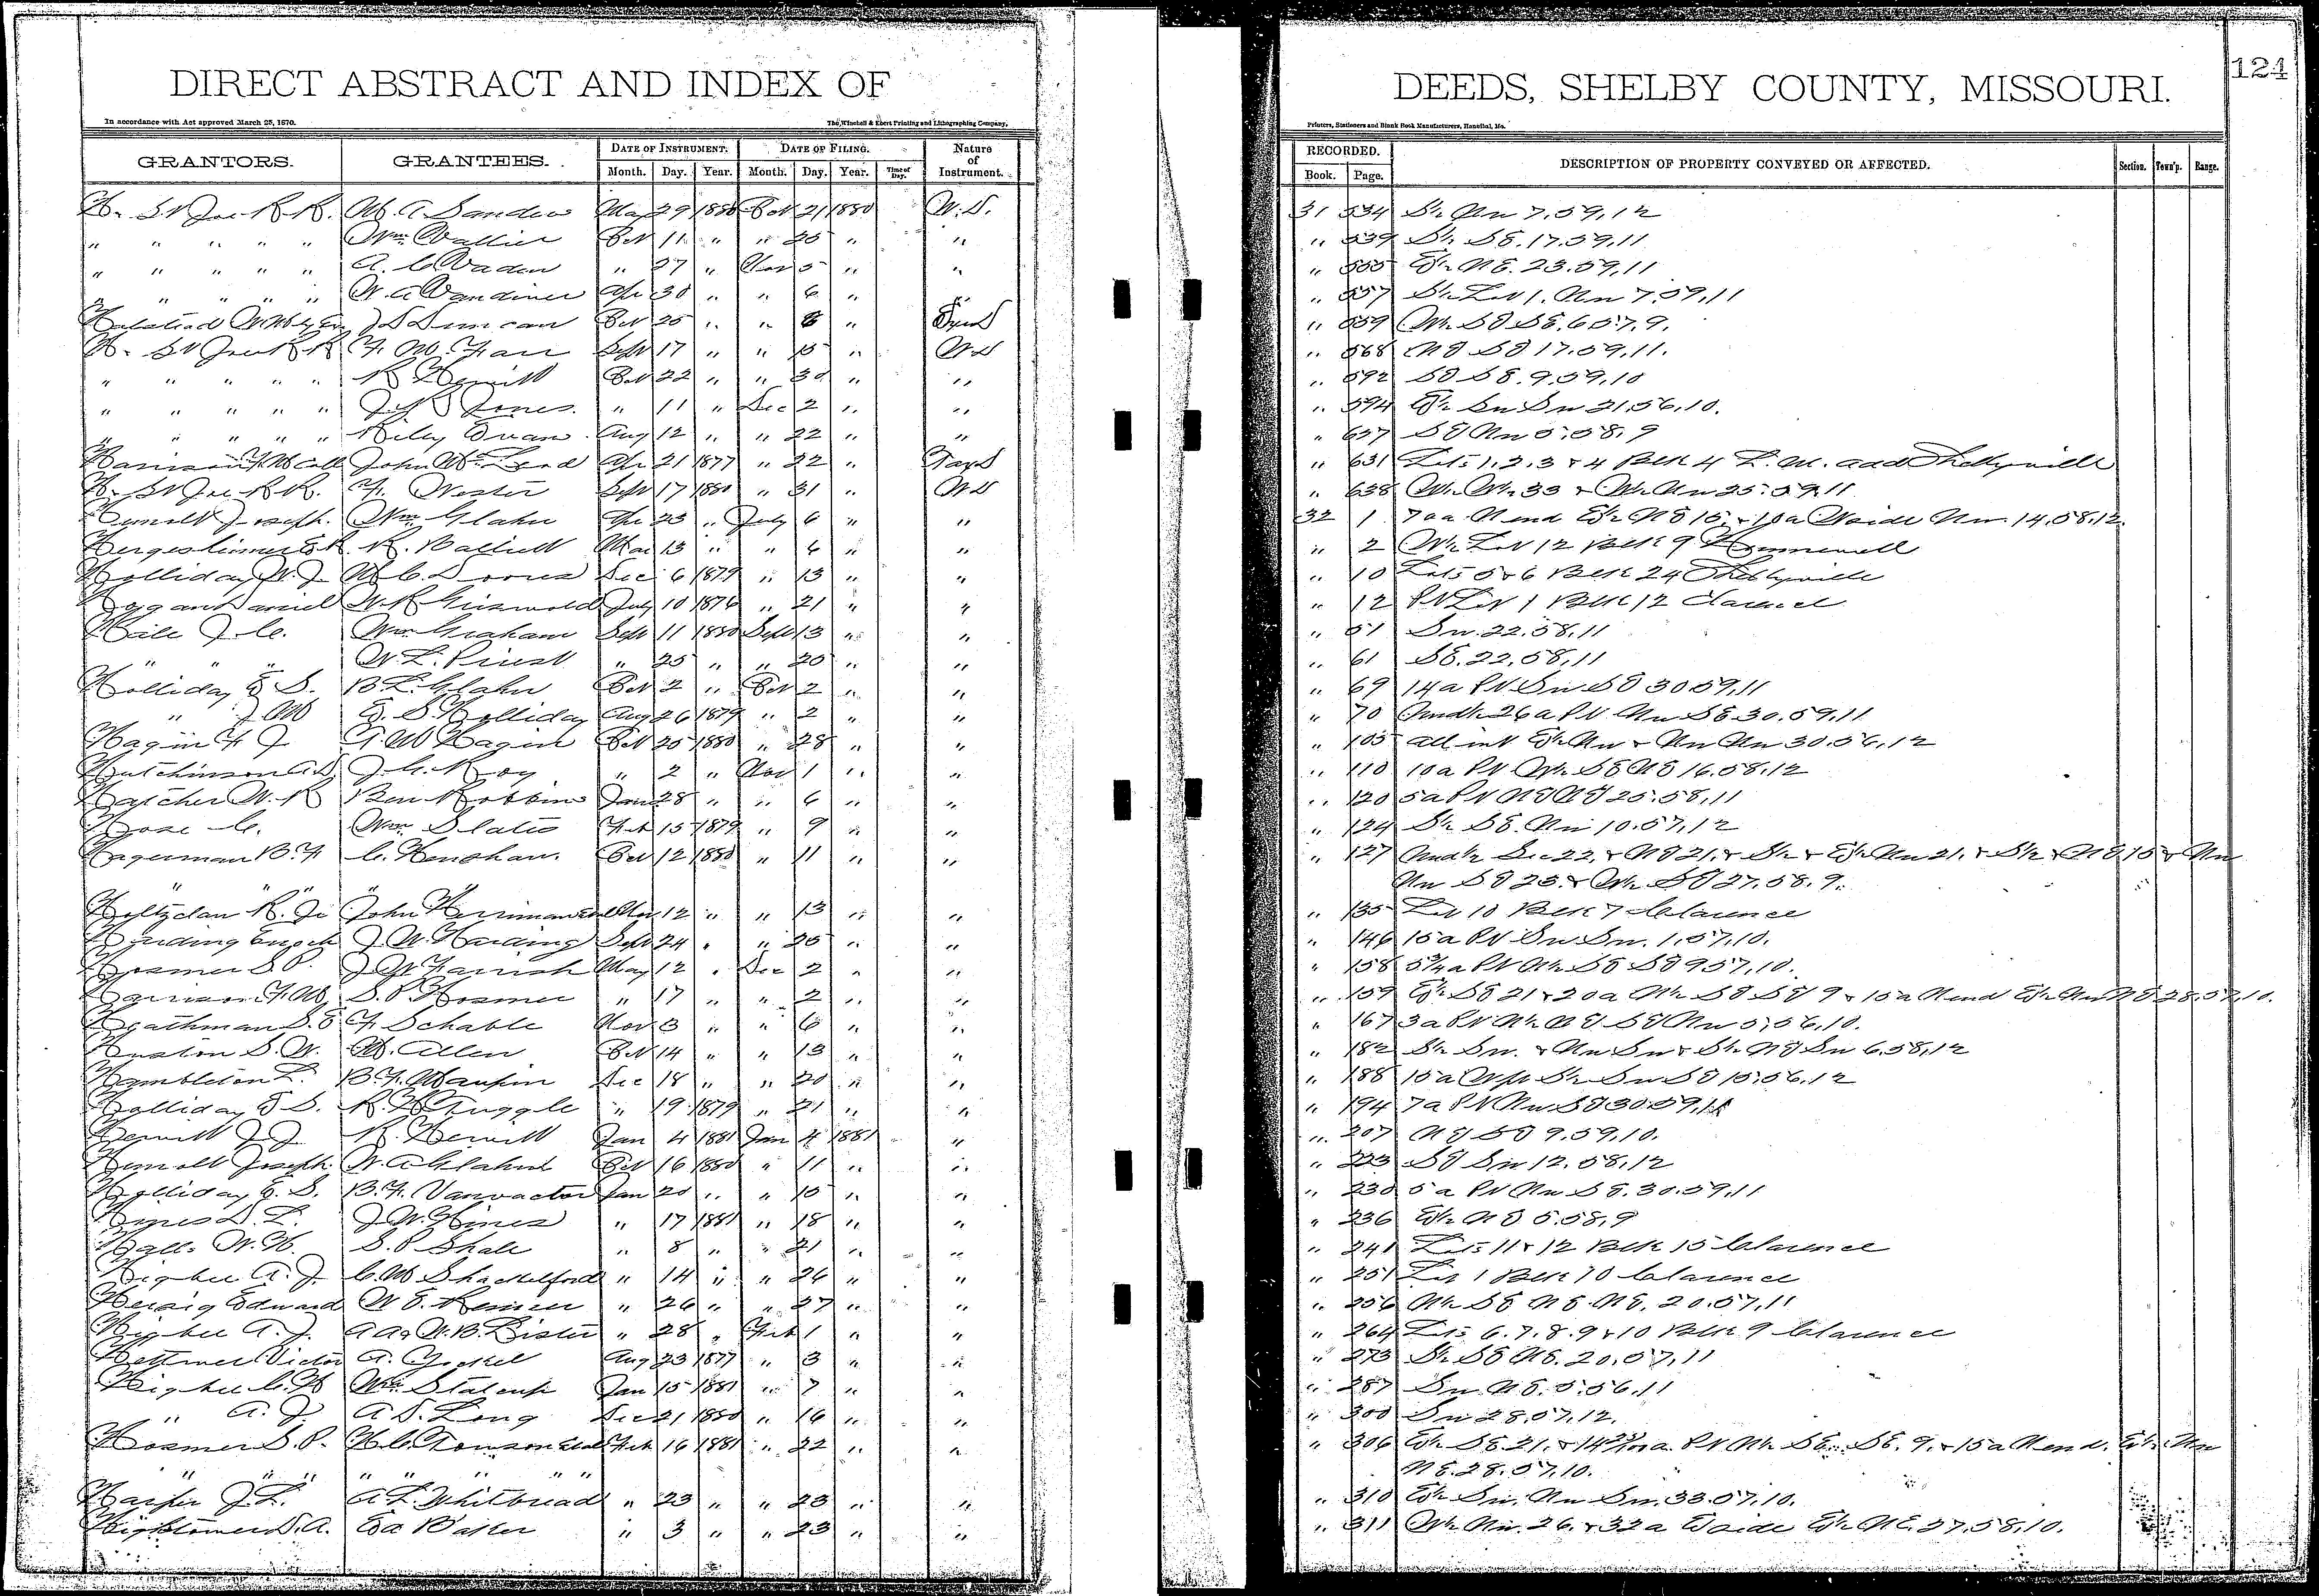 DIRECT ABSTRACT AND INDEX OF
DEEDS, SHELBY COUNTY, MISSOURI.
124
In accordance with Act approved March 25, 1870.
The Winchell & Ebert Printing and Lithographing Company,
Printers, Stationers and Blank Book Manufacturers, Hannibal, Mo.
GRANTORS. GRANTEES. DATE OF INSTRUMENT. DATE OF FILING. Nature of Instrument. RECORDED. DESCRIPTION OF PROPERTY CONVEYED OR AFFECTED. Section. Town'p. Range.
Month. Day. Year. Month. Day. Year. Time of Day. Book. Page.
H. & St Joe R.R. May 29 1880 Oct 21 1880 W.D. 31 534 7.59.12
" " " " " Wm Oct 11 " " 25 " " " 539 S½ SE.17.59.11
" " " " " A. C. Vaden " 27 " Nov 5 " " " 555 E½ NE.23.59.11
" " " " " W. A. Vandiver Apr 30 " " 6 " " " 557 S½ Lot 1. Nw 7.59.11
J S Duncan Oct 25 " " 8 " " 559 W½ SE SE.6.57.9.
H. & St Joe R R F. M. Farr Sept 17 " " 15 " WD " 568 NE SE 17.59.11.
" " " " " R Hewitt Oct 22 " " 30 " " " 592 SE SE.9.59.10
" " " " " Jones. " 11 " Dec 2 " " " 594 E½ Sw Sw 21.56.10.
" " " " " Riley Evans Aug 12 " " 22 " " " 627 SE Nw 5.58.9
Harrison F. M Coll John Apr 21 1877 " 22 " " 631 Lots 1.2.3 & 4 Blk 4 add Shelbyville
H. & St Joe R.R. F. Wester Sept 17 1880 " 31 " WD " 638 W½ W½ 33 & W½ Nw 25.59.11
Joseph. Wm Glahn Apr 23 " July 6 " " 32 1 70a N end E½ NE 15. & 10a W side Nw. 14.58.12.
R. Mar 13 " " 6 " " " 2 W½ Lot 12 Blk 9 Hunnewell
Holliday W. J. Dec 6 1879 " 13 " " " 10 Lots 5 & 6 Blk 24 Shelbyville
Daniel W. R Griswold July 10 1876 " 21 " " " 12 Pt Lot 1 Blk 12 Clarence
J. C. Wm Graham Sept 11 1880 Sept 13 " " " 51 Sw.22.58.11
" " " W. L. Priest " 25 " " 25 " " " 61 SE.22.58.11
Holliday E S. B L. Glahn Oct 2 " Oct 2 " " " 69 14a Pt Sw SE 30.59.11
" J M E. S. Holliday Aug 26 1879 " 2 " " " 70 Und½ 26a Pt Nw SE 30.59.11
Hagin F J Hagin Oct 25 1880 " 28 " " " 105 all int E½ Nw & Nw Nw 30.56.12
Hutchinson J. C. Roy " 2 " Nov 1 " " " 110 10a Pt W½ SE NE 16.58.12
Hatcher W. R Ben Robbins Jan 28 " " 6 " " " 120 5a Pt NE NE 25.58.11
C. Wm Slater Feb 15 1879 " 9 " " " 124 S½ SE. Nw 10.57.12
Hagerman B. F C. Henshaw. Oct 12 1880 " 11 " " " 127 Und½ Sec 22. & NE 21. & S½ & E½ Nw 21. & S½ & NE 15 & Nw
" " " " Nw SE 23. & W½ SE 27.58.9.
Holtzclaw R. J. John Herriman Nov 12 " " 13 " " " 135 Lot 10 Blk 7 Clarence
Harding Enoch J. W. Harding Sept 24 " " 25 " " " 146 15a Pt Sw Sw. 1.57.10.
Hosmer S P. J W Farrish May 12 " Dec 2 " " " 158 5¾ a Pt N½ SE SE 9.57.10.
Harrison F. M. S. P Hosmer " 17 " " 2 " " " 159 E½ SE 21 & 20a N½ SE SE 9 & 15a N end E½ Nw NE 28.57.10.
Heathman S. E F. Schable Nov 3 " " 6 " " " 167 3a Pt N½ NE SE Nw 5.56.10.
Huston S. W. M. Allen Oct 14 " " 13 " " " 182 S½ Sw. & Nw Sw & S½ NE Sw 6.58.12
Hambleton L. B. F. Maupin Dec 18 " " 20 " " " 188 15a S½ Sw SE 15.56.12
Holliday E S. R. H. Tuggle " 19 1879 " 21 " " " 194 7a Pt Nw SE 30.59.11
Hewitt J. J. R. Hewitt Jan 4 1881 Jan 4 1881 " " 207 NE SE 9.59.10.
Joseph. W. A Glahn Oct 16 1880 " 11 " " " 223 SE Sw 12.58.12
Holliday E. S. B. F. Vanvactor Jan 20 " " 15 " " " 230 5a Pt Nw SE.30.59.11
Hines D. L. J. W. Hines " 17 1881 " 18 " " " 236 E½ NE 5.58.9
Hall W. H. S. P Shale " 8 " " 21 " " " 241 Lots 11 & 12 Blk 15 Clarence
Higbee A. J. C. M Shackelford " 14 " " 26 " " " 251 Lot 1 Blk 10 Clarence
Herzig Edward W E. " 26 " " 27 " " " 256 N½ SE NE NE. 20.57.11
Higbee A. J. A A & W. B. Lister " 28 " Feb 1 " " " 264 Lots 6.7.8.9 & 10 Blk 9 Clarence
Victor A. Aug 23 1877 " 3 " " " 273 S½ SE NE.20.57.11
Higbee C. H Wm Stalcup Jan 15 1881 " 7 " " " 287 Sw NE.5.56.11
" A. J. A. S. Long Dec 21 1880 " 16 " " " 300 Sw 28.57.12.
Hosmer S. P. H. C. Towson Feb 16 1881 " 22 " " " 306 E½ SE 21. & 14 a. Pt N½ SE. SE. 9. & 15a N end. E½ Nw
" " " " " " " " NE.28.57.10.
Harper J. L. A L. Whitbread " 23 " " 23 " " " 310 E½ Sw. Nw Sw. 33.57.10.
Hightower S. A. " 3 " " 23 " " " 311 W½ Nw. 26. & 32a E side E½ NE. 27.58.10.